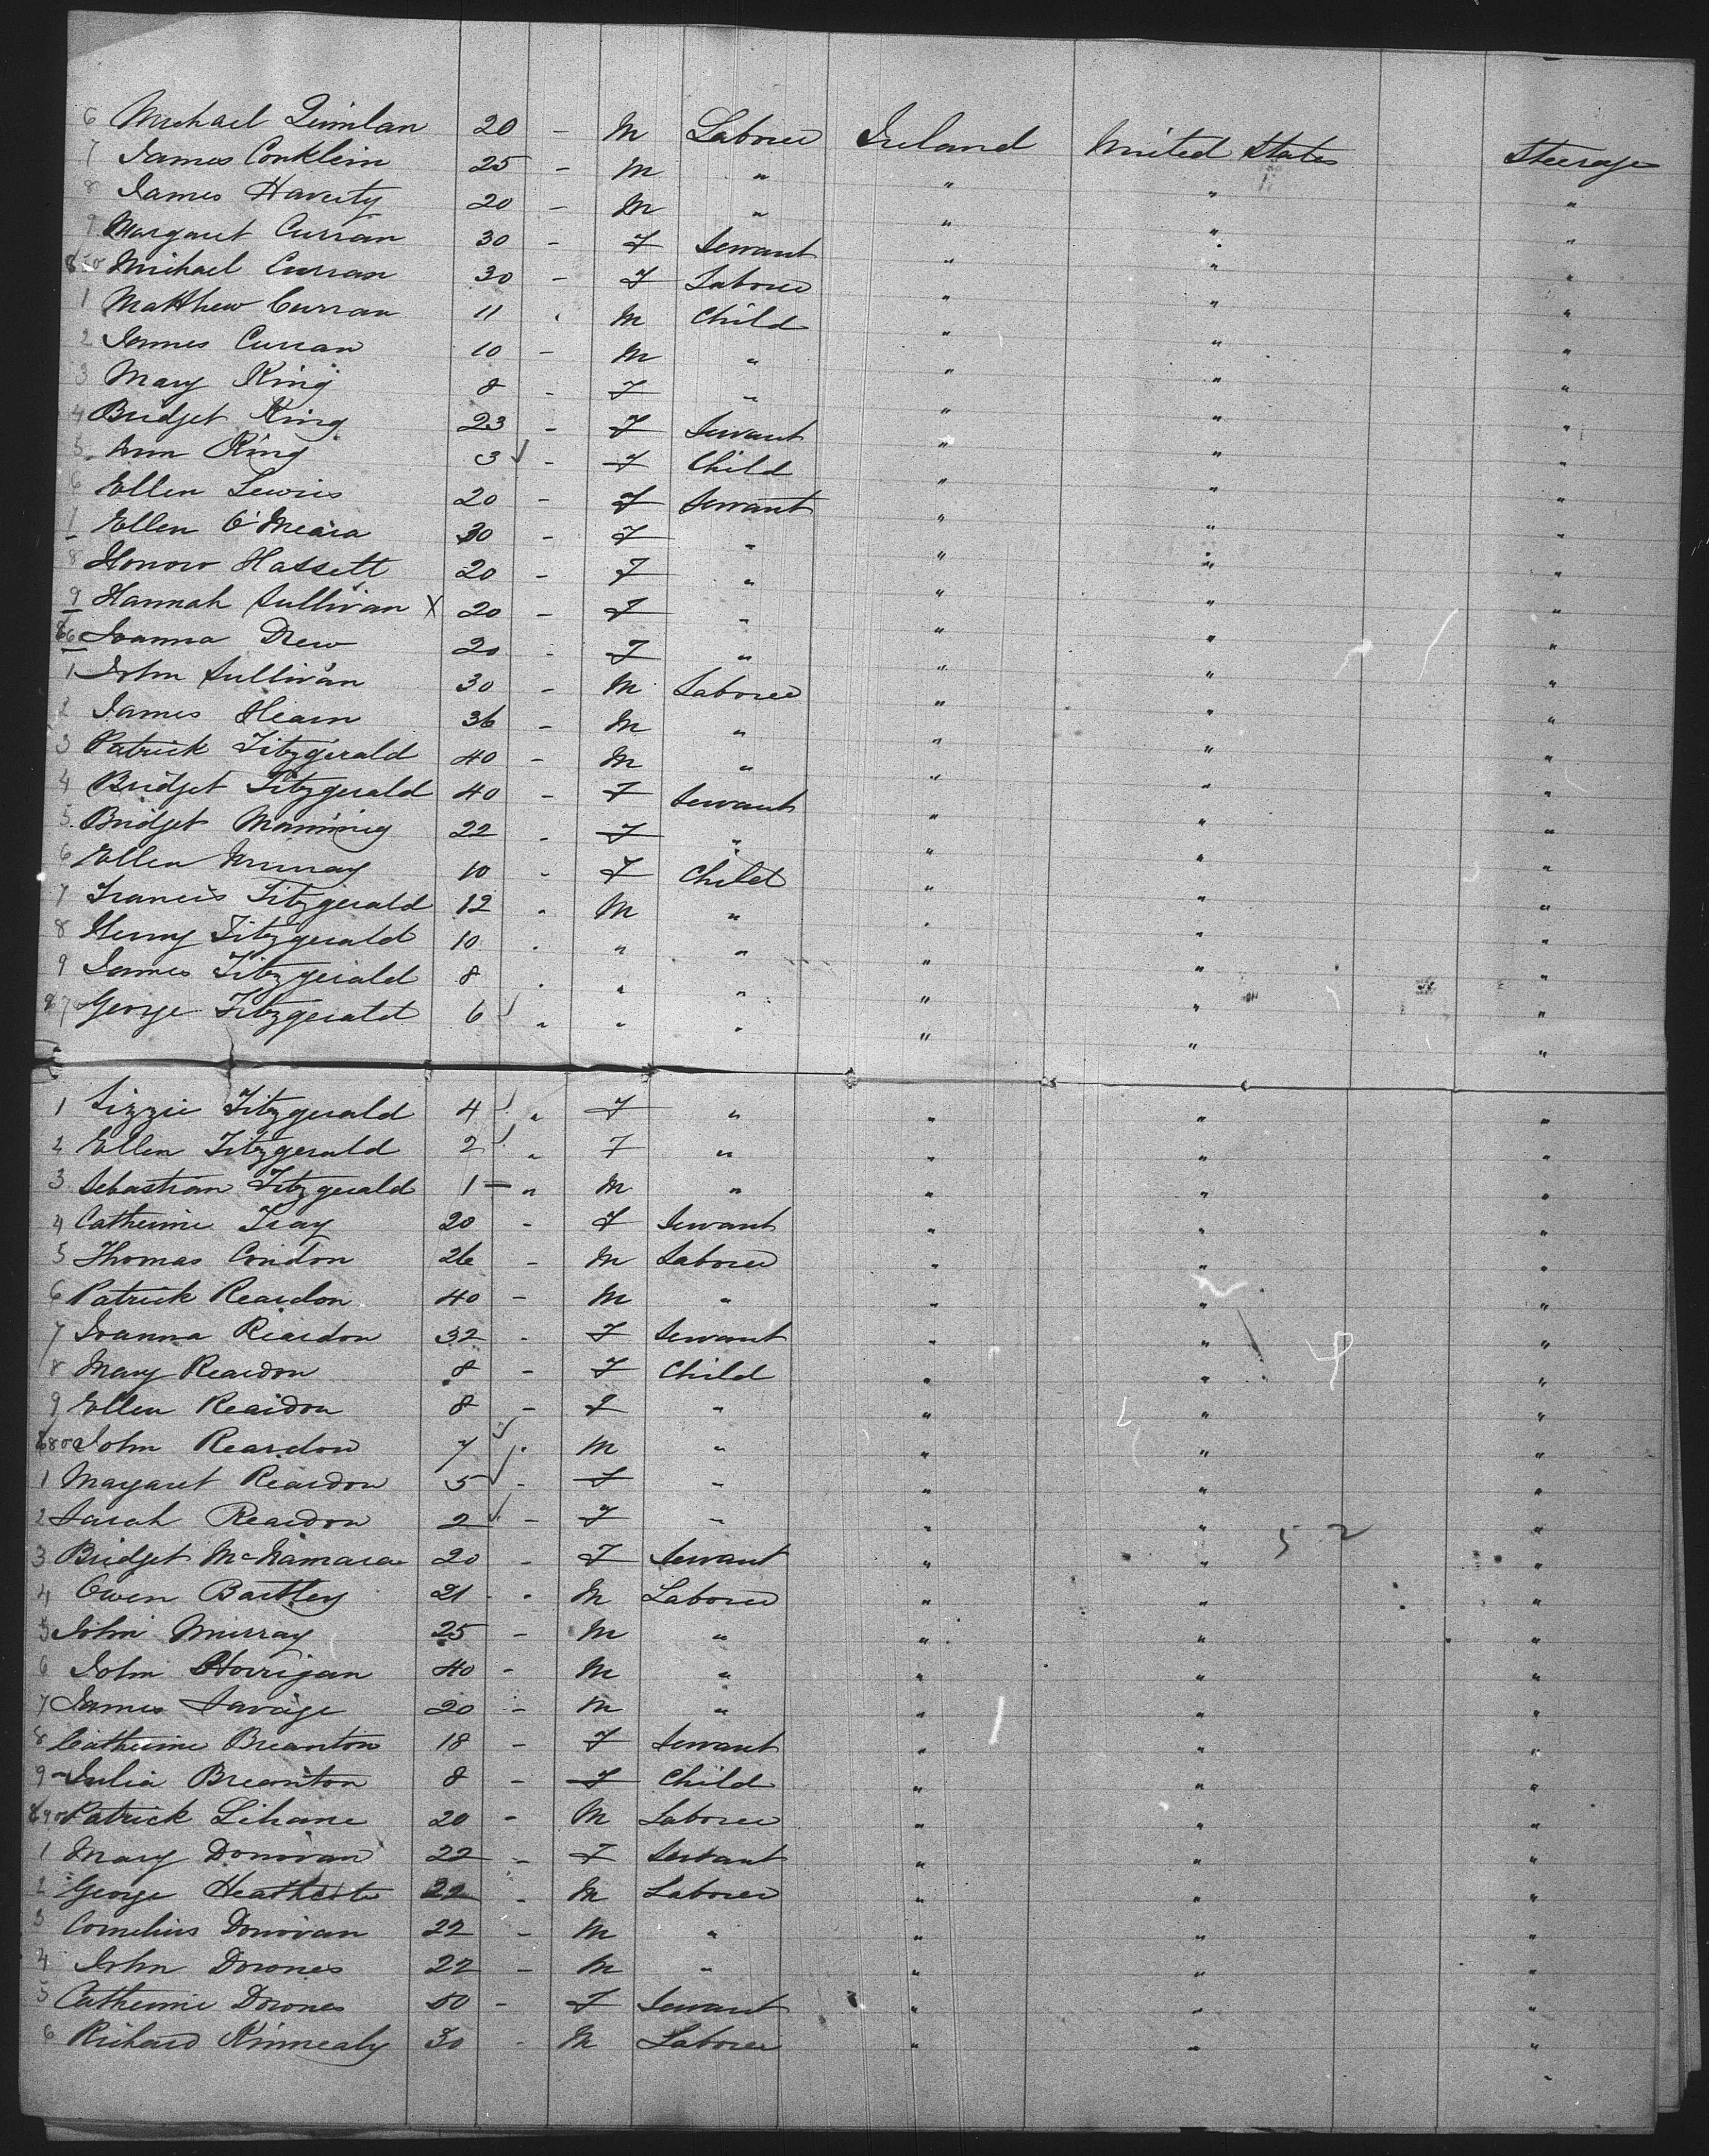 6 Michael Quinlan 20 - M Laborer Ireland United States Steerage
7 James Conklin 25 - M " " " "
8 James Haverty 20 - M " " " "
9 Margaret Curran 30 - F Servant " " "
850 Michael Curran 30 - F Laborer " " "
1 Matthew Curran 11 " M Child " " "
2 James Curran 10 - M " " " "
3 Mary King 8 - F " " " "
4 Bridget King 23 - F Servant " " "
5 Ann King 3 ✓ - F Child " " "
6 Ellen Lewis 20 - F Servant " " "
7 Ellen O'Meara 30 - F " " " "
8 Honor Hassett 20 - F " " " "
9 Hannah Sullivan X 20 - F " " " "
860 Joanna Drew 20 - F " " " "
1 John Sullivan 30 - M Laborer " " "
2 James Hearn 36 - M " " " "
3 Patrick Fitzgerald 40 - M " " " "
4 Bridget Fitzgerald 40 - F Servant " " "
5 Bridget Manning 22 - F " " " "
6 Ellen Murray 10 - F Child " " "
7 Francis Fitzgerald 12 " M " " " "
8 Henry Fitzgerald 10 " " " " " "
9 James Fitzgerald 8 " " " " " "
870 George Fitzgerald 6 ✓ " " " " " "
1 Lizzie Fitzgerald 4 ✓ " F " " " "
2 Ellen Fitzgerald 2 ✓ " F " " " "
3 Sebastian Fitzgerald 1 - " M " " " "
4 Catherine 20 - F Servant " " "
5 Thomas Condon 26 - M Laborer " " "
6 Patrick Reardon 40 - M " " " "
7 Joanna Reardon 32 - F Servant " " "
8 Mary Reardon 8 - F Child " " "
9 Ellen Reardon 8 - F " " " "
880 John Reardon 7 ✓ " M " " " "
1 Margaret Reardon 5 ✓ - F " " " "
2 Sarah Reardon 2 ✓ - F " " " "
52
3 Bridget McNamara 20 - F Servant " " "
4 Owen Bartley 21 - M Laborer " " "
5 John Murray 25 - M " " " "
6 John Horrigan 40 - M " " " "
7 James Savage 20 - M " " " "
8 Catherine Breanton 18 - F Servant " " "
9 Julia Breanton 8 - F Child " " "
890 Patrick Lihane 20 - M Laborer " " "
1 Mary Donovan 22 - F Servant " " "
2 George Heathcote 22 - M Laborer " " "
3 Cornelius Donovan 22 - M " " " "
4 John Downes 22 - M " " " "
5 Catherine Downes 50 - F Servant " " "
6 Richard Kinnealy 30 - M Laborer " " "